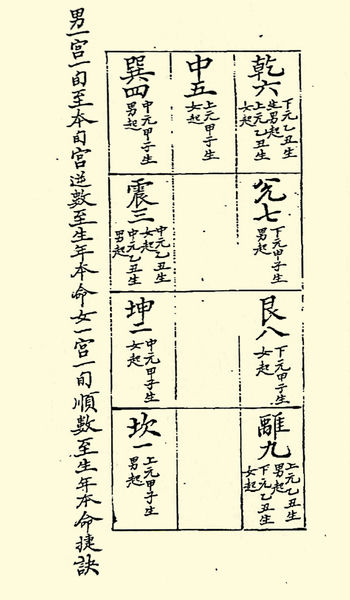 乾六
下元乙丑生
生男起
上元乙丑生
女起
兌七
下元甲子生
男起
艮八
下元甲子生
女起
離九
上元乙丑生
男起
下元乙丑生
女起
中五
上元甲子生
女起
巽四
中元甲子生
男起
震三
中元乙丑生
女起
中元乙丑生
男起
坤二
中元甲子生
女起
坎一
上元甲子生
男起
男一宮一旬至本旬宮逆數至生年本命女一宮一旬順數至生年本命捷訣